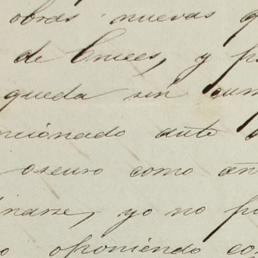 obras nuevas q
de Cruces, y p
queda sin cum
ncionado auto
oscuro como an
narse, yo no p
o oponiendo co